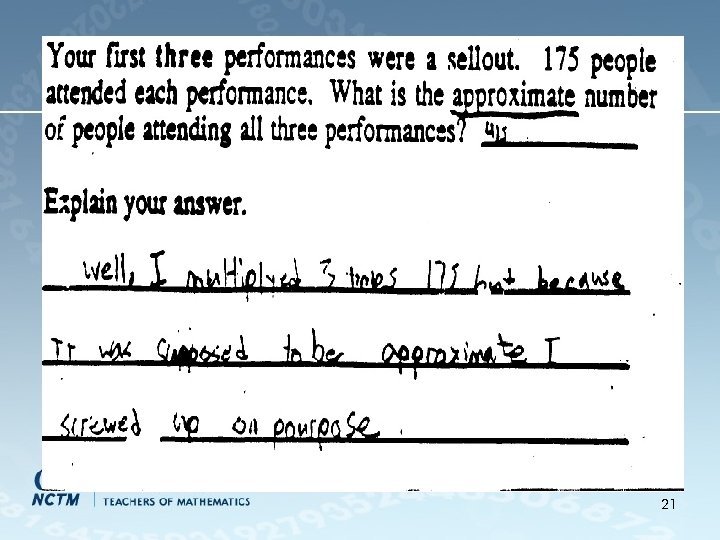 Your first three performances were a sellout. 175 people
attended each performance. What is the approximate number
of people attending all three performances? 415
Explain your answer.
well, I multiplyed 3 times 175 but because
It was supposed to be approximate I
screwed up on pourpose.
NCTM TEACHERS OF MATHEMATICS
21